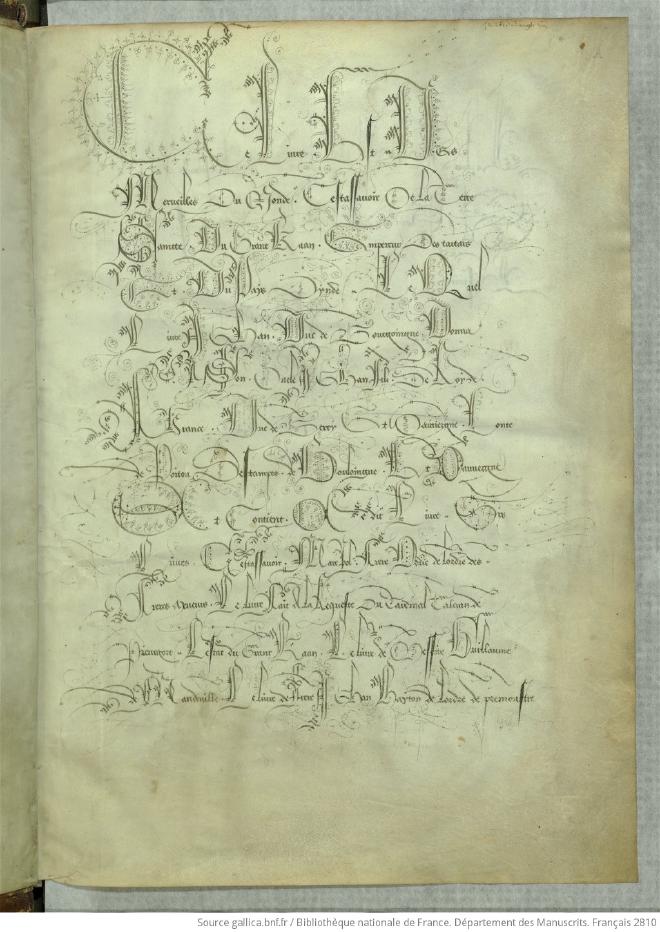 Ce Livre Est Des
Merveilles Du Monde. Cestassavoir De La Terre
Saincte. Du Grant Kaan. Empereur Des tartars
Et Du Pays Dynde. Le Quel
Livre Jehan Duc de Bourgoingne Donna
A Son Oncle Jehan Filz De Roy de
France Duc de Berry Et Dauvergne. Conte
de Poitou Destampes. de Bouloingne. Et Dauvergne
Et Contient. Le Dit Livre. Six
Livres. Cestassavoir. Marc pol. Frere Odric de lordre des
Freres meneurs. Le Livre Fait A La Requeste Du Cardinal Taleran de
Pierregort. Lestat du Grant Kaan. Le livre de Messire Guillaume
de Mandeville. Le livre de Frere Jehan Hayton de lordre de premonstre
Source gallica.bnf.fr / Bibliothèque nationale de France. Département des Manuscrits. Français 2810